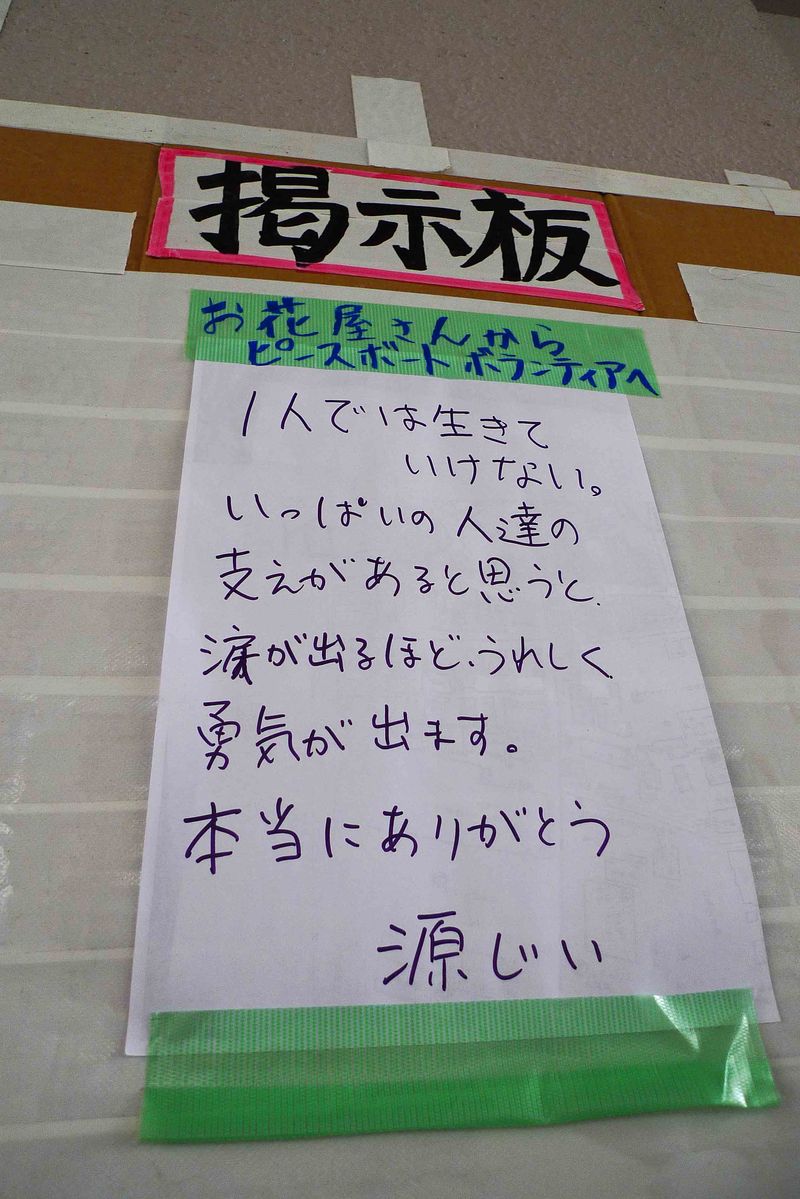 掲示板
お花屋さんから
ピースボートボランティアへ
1人では生きて
いけない。
いっぱいの人達の
支えがあると思うと、
涙が出るほど、うれしく
勇気が出ます。
本当にありがとう
源じい